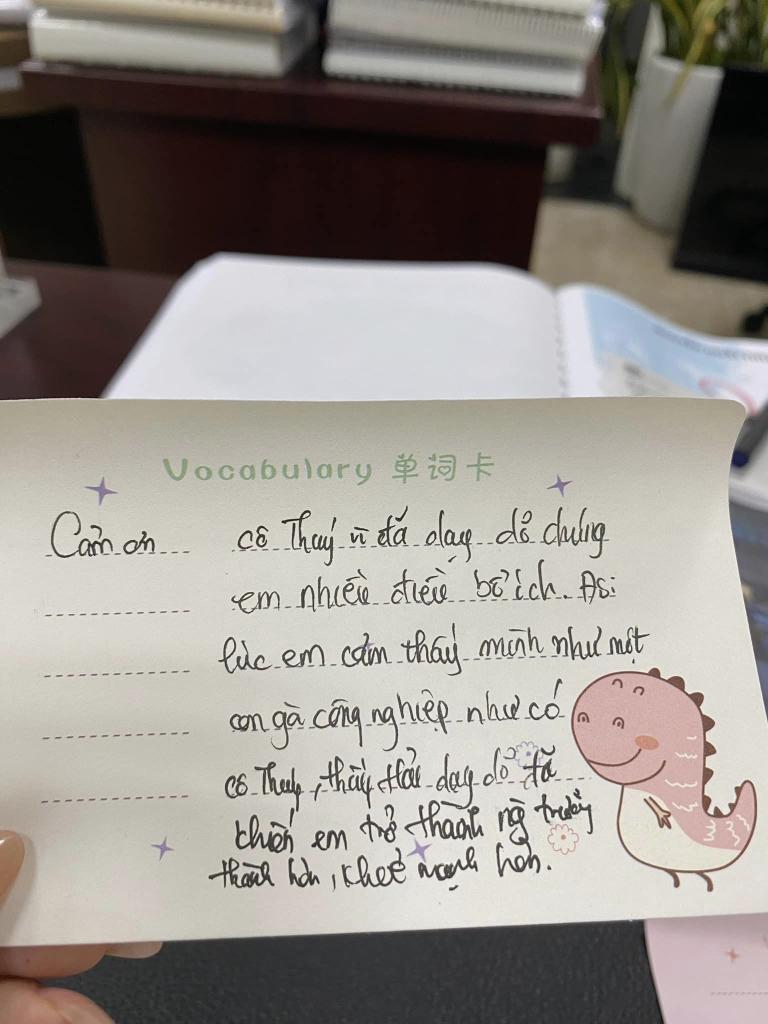 Vocabulary 单词卡
Cảm ơn cô Thuý vì đã dạy dỗ chúng
em nhiều điều bổ ích. Đôi
lúc em cảm thấy mình như một
con gà công nghiệp như có
cô Thuý, thầy dạy dỗ đã
khiến em trở thành ng trưởng
thành hơn, khoẻ mạnh hơn.